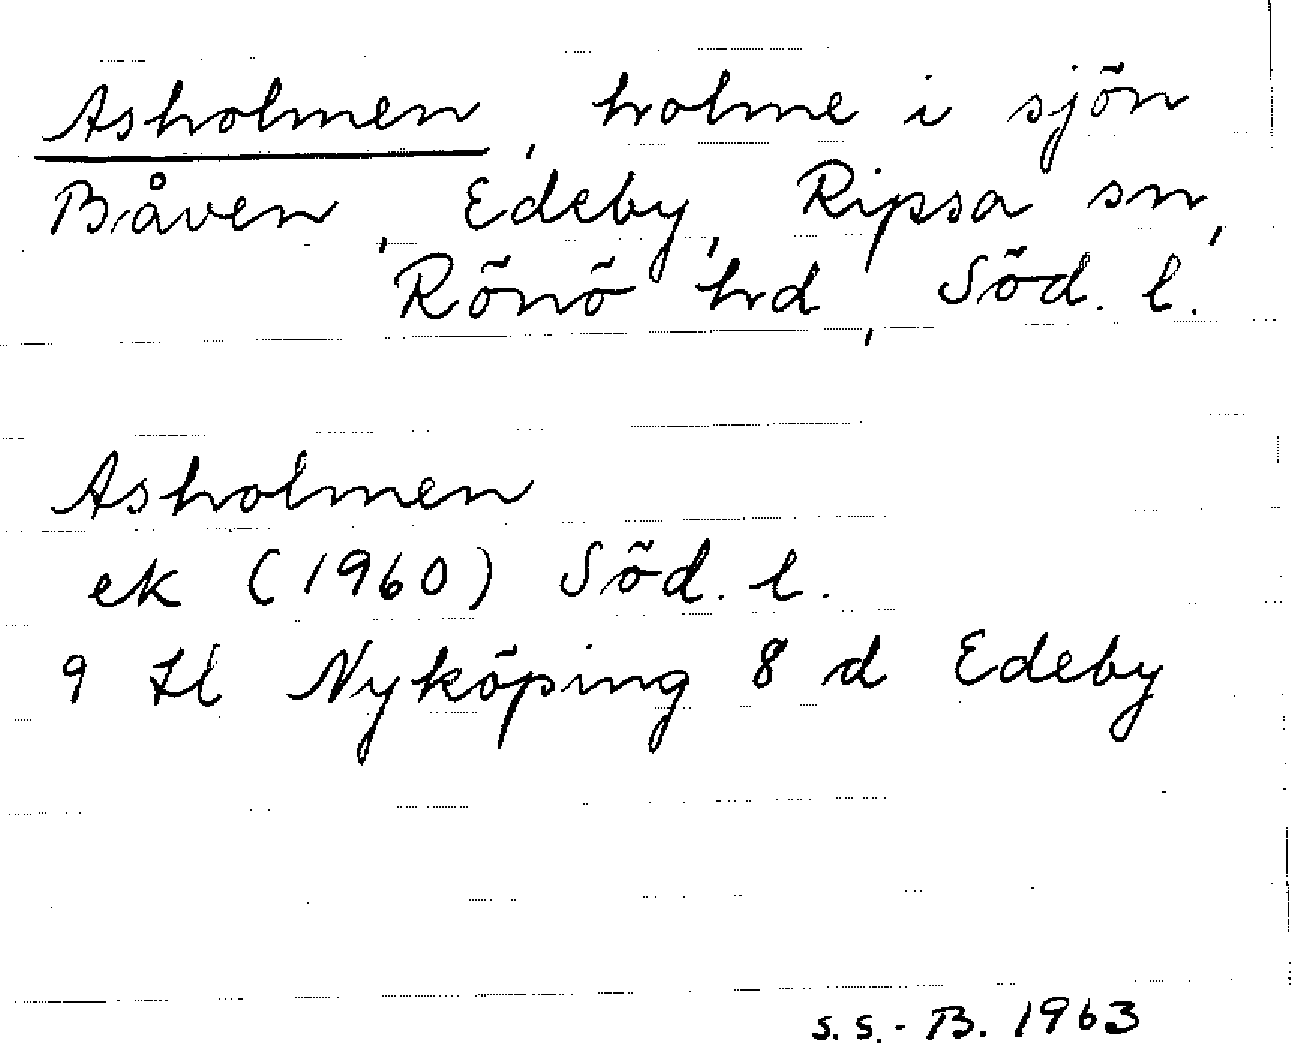 Asholmen, holme i sjön
Båven, Edeby, Ripsa sn,
Rönö hd, Söd. l.
Asholmen
ek (1960) Söd. l.
9 H Nyköping 8 d Edeby
s.s.-B. 1963